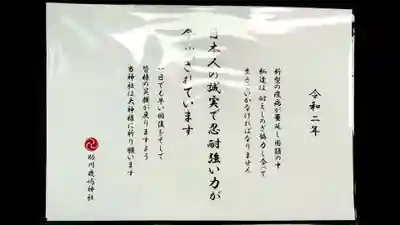 令和二年
新型の疫病が蔓延し困難の中
私達は耐えしのぎ協力し合って
生きていかなければなりません
日本人の誠実で忍耐強い力が
今試されています
一日でも早い回復をそして
皆様の笑顔が戻りますよう
当神社は大神様に祈り願います
助川鹿嶋神社